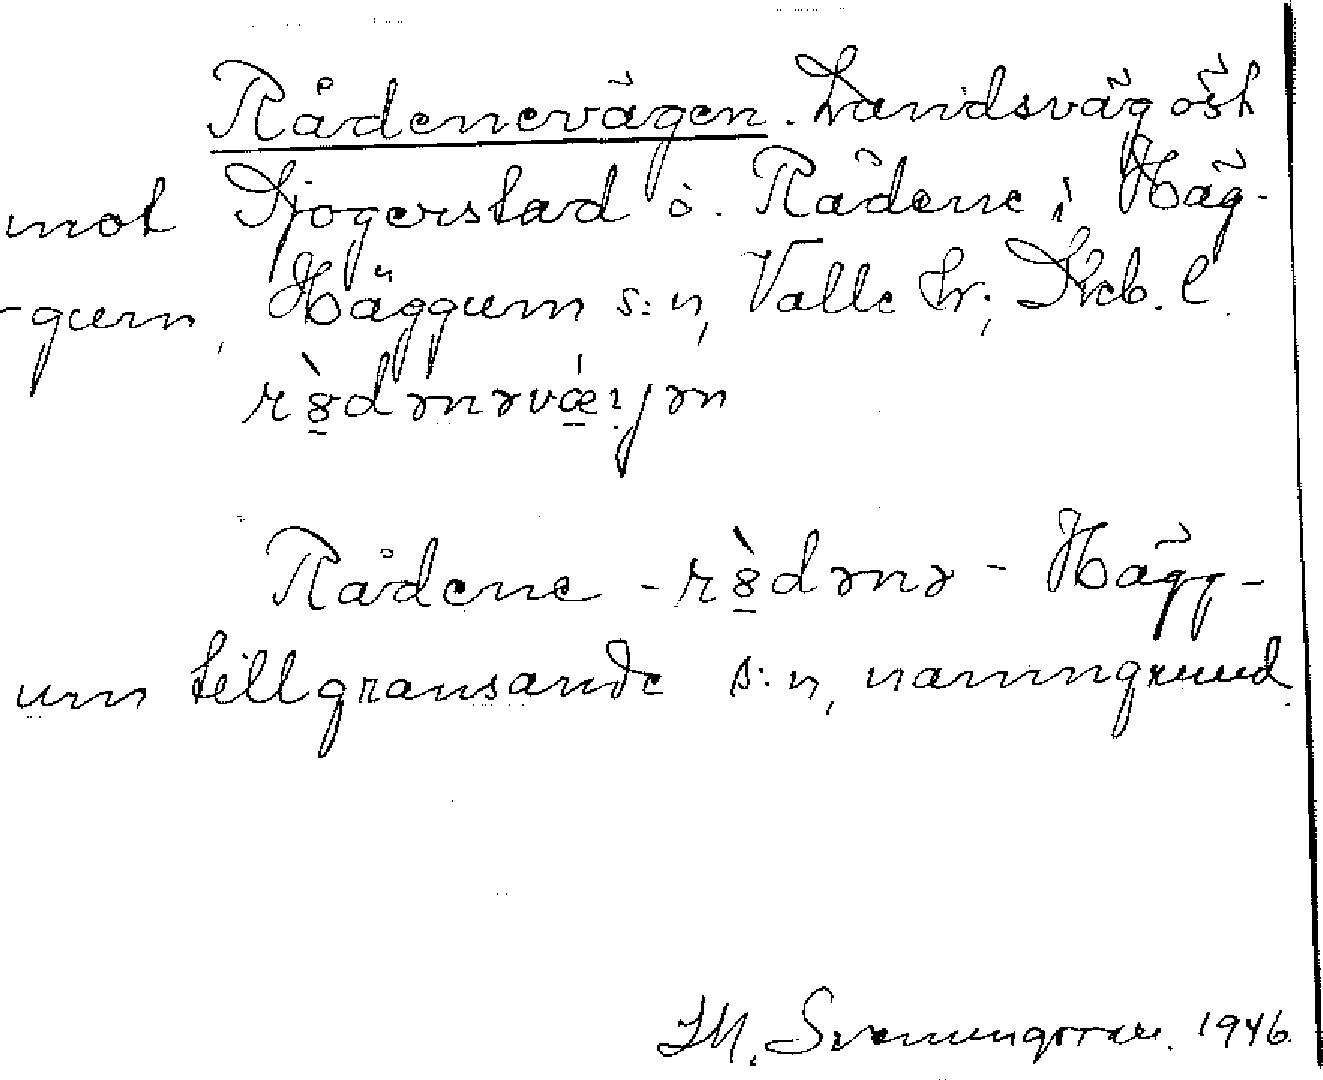 Rådenevägen. Landsväg öst
mot Sjogerstad o. Rådene i Häg-
-gum, Häggum s:n, Valle hr; Skb. l.
rꝏ̀dənəvǽ̱ꞁyən
Rådene - rꝏ̀dənə - Hägg-
um tillgränsande s:n, namngrund.
J M. Svenungsson. 1946.